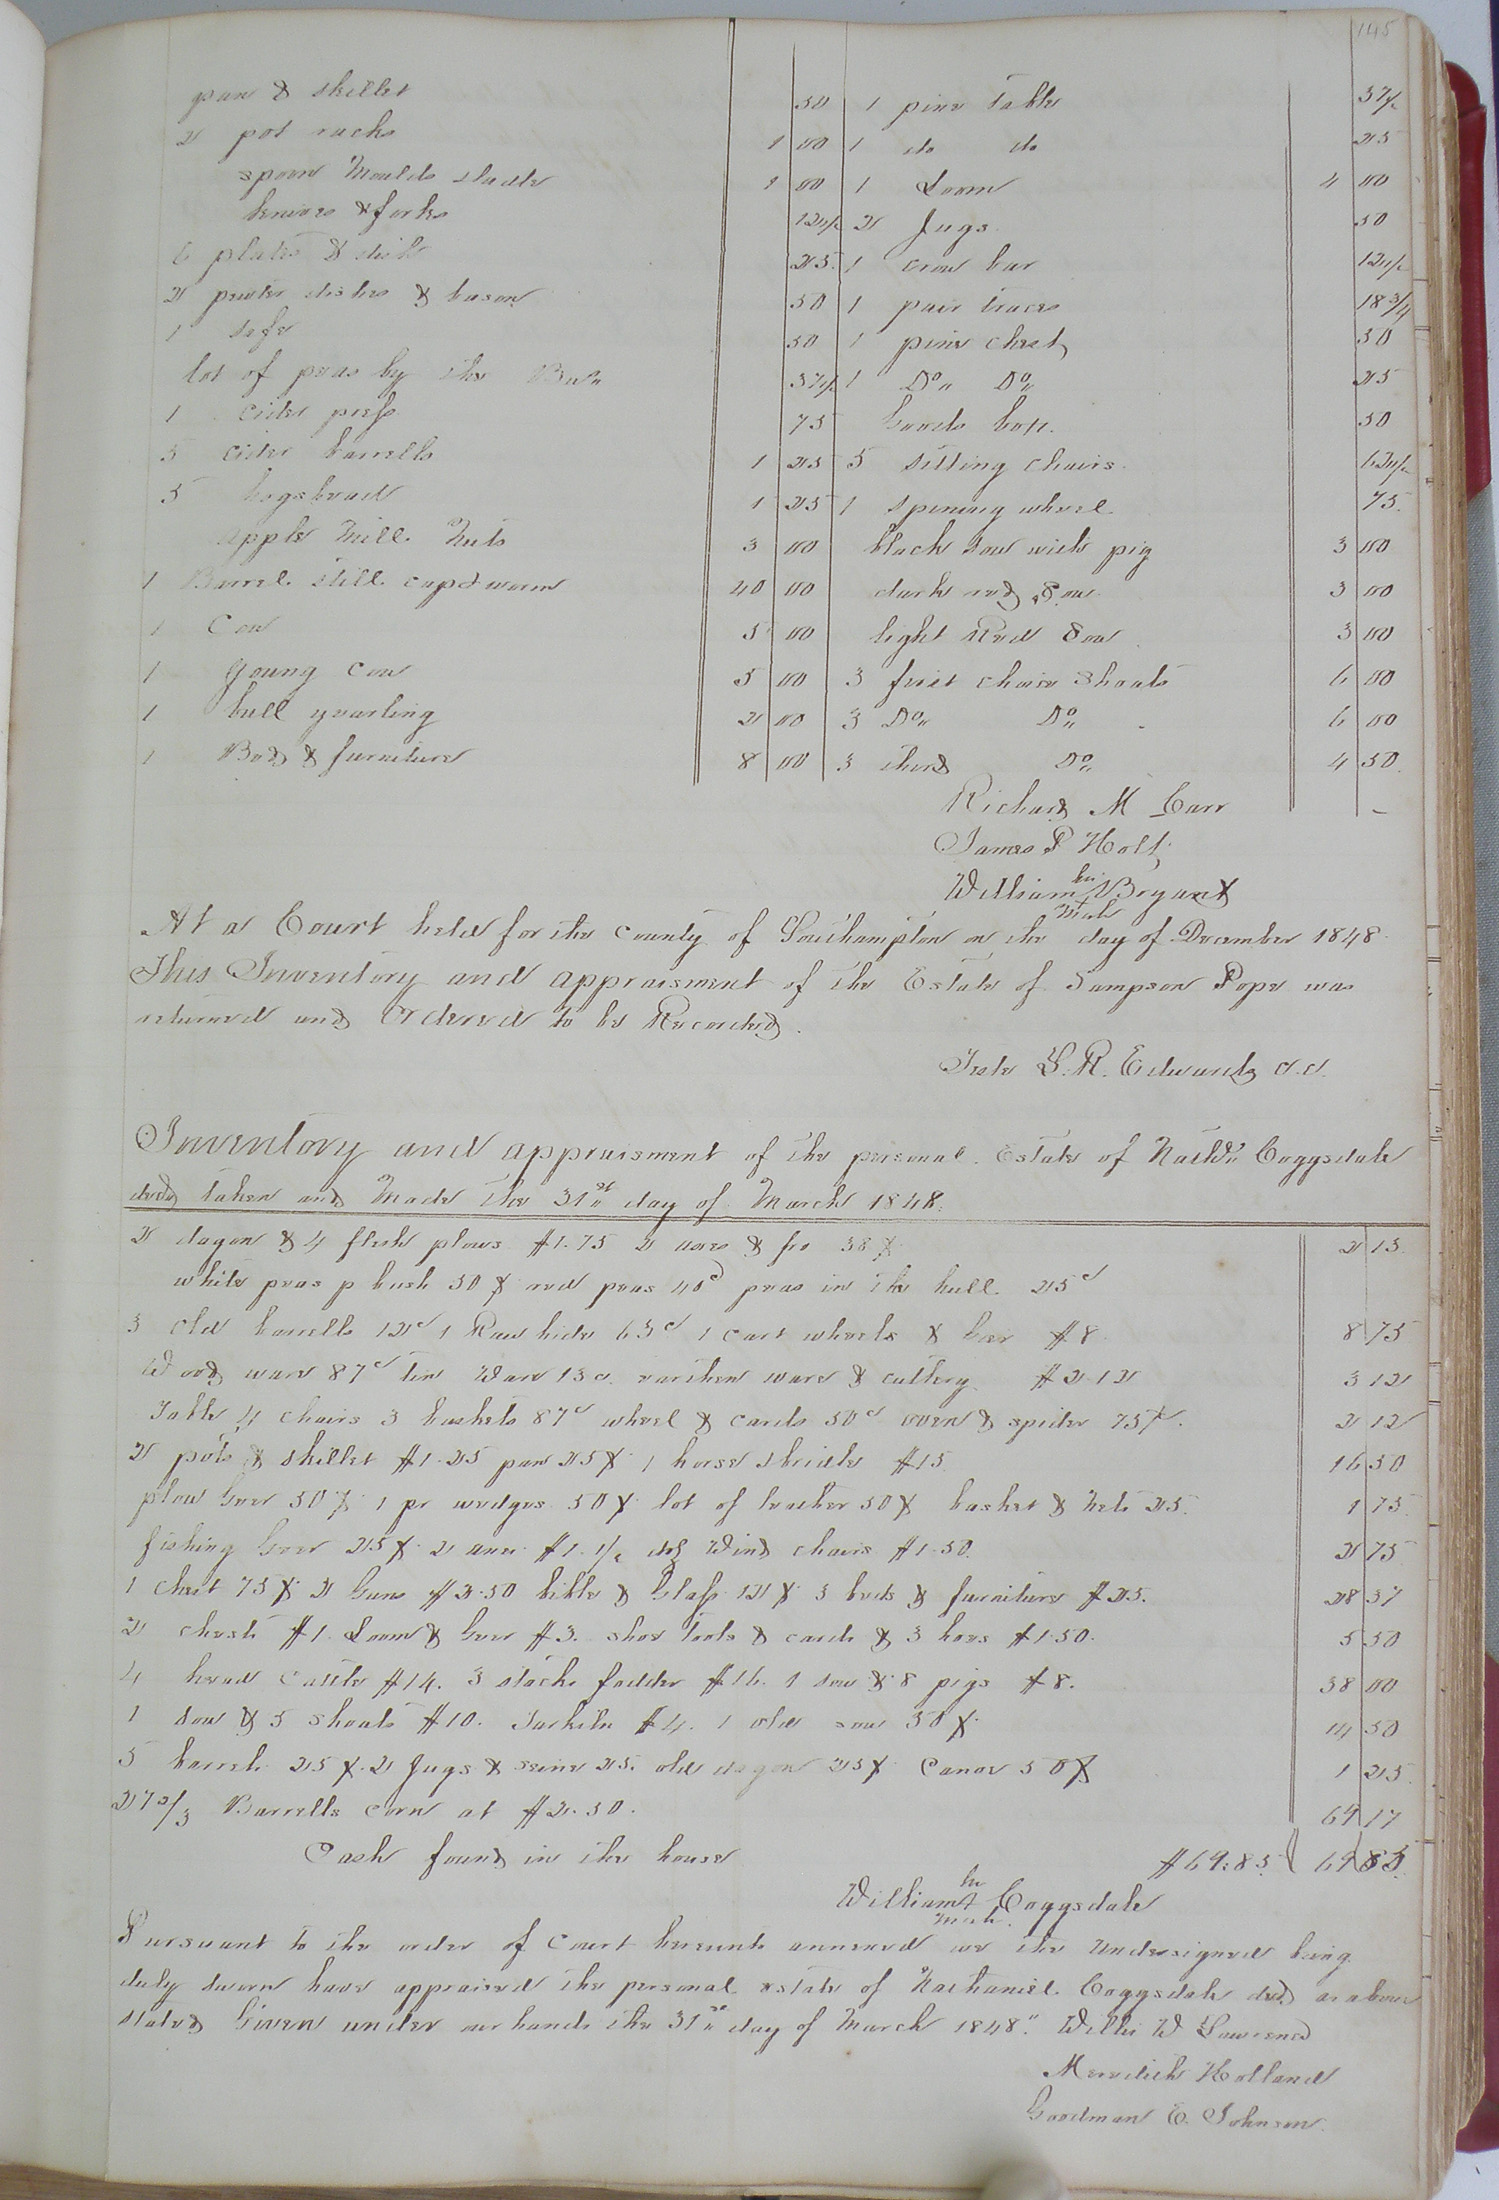 145
pan & skillet 50
2 pot racks 1 00
spoon Moulds ladle 1 00
knives & forks 12 1/2
6 plates & dish 25
2 pewter dishes & bason 50
1 safe 50
lot of peas by the Bus" 37 1/2
1 cider press 75
5 cider barrells 1 25
5 hogshead 1 25
apple Mill Nuts 3 00
1 Barrel still cap & worm 40 00
1 Cow 5 00
1 young cow 5 00
1 bull yearling 2 00
1 Bed & furniture 8 00
1 pine Table 37 1/2
1 do do 25
1 Loom 4 00
2 Jugs 50
1 crow bar 12 1/2
1 pair traces 18 3/4
1 pine chest 50
1 Do" Do" 25
Goods box 50
5 sitting chairs 62 1/2
1 spining wheel 75
black sow with pig 3 00
dark red Sow 3 00
light Red Sow 3 00
3 first choice Shoats 6 00
3 Do" Do" 6 00
3 third Do" 4 50
Richard M Carr
James P Holt
William his mark Bryant X
At a Court held for the County of Southampton on the day of December 1848
This Inventory and appraisment of the Estate of Sampson Pope was
returned and Ordered to be Recorded.
Teste L. R. Edwards c.c.
Inventory and appraisment of the personal Estate of Nath'l" Coggsdale
decd taken and Made the 31st day of March 1848.
2 dagon & 4 flesh plows $1.75 2 axes & fro 38 ¢ 2 13
white peas p bush 50 ¢ red peas 40c peas in the hull 25c
3 Old barrells 12c 1 Raw hide 63c 1 cart wheels & Gear $8 8 75
Wood ware 87c tin Ware 13c. earthen ware & cutlery $2.12 3 12
Table 4 chairs 3 baskets 87c wheel & cards 50c oven & spider 75¢. 2 12
2 pots & skillet $1.25 pan 25¢ 1 horse & bridle $15 16 50
plow Gear 50¢ 1 pr wedges 50¢ lot of leather 50¢ basket & Nets 25. 1 75
fishing Gear 25¢ 2 $1. 1/2 doz Wind chairs $1.50. 2 75
1 chest 75¢ 2 Guns $2.50 bible & Glass 12¢ 3 beds & furniture $25. 28 37
2 chests $1. Loom & Gear $3. shoe tools & cards & 3 hoes $1.50. 5 50
4 head Cattle $14. 3 stacks fodder $16. 1 sow & 8 pigs $8. 38 00
1 sow & 5 Shoats $10. $4. 1 old sow 50¢ 14 50
5 barrels 25¢ 2 Jugs & seine 25. old dagon 25¢ Canoe 50¢ 1 25
27 2/3 Barrells corn at $2.50. 69 17
Cash found in the house $69.85 69 85
William his mark Coggsdale
Pursuant to the order of Court hereunto annexed we the Undersigned being
duly sworn have appraised the personal estate of Nathaniel Coggsdale decd as above
stated Given under our hands the 31st day of March 1848". Willis W Lawrence
Meredith Holland
Goodman E. Johnson